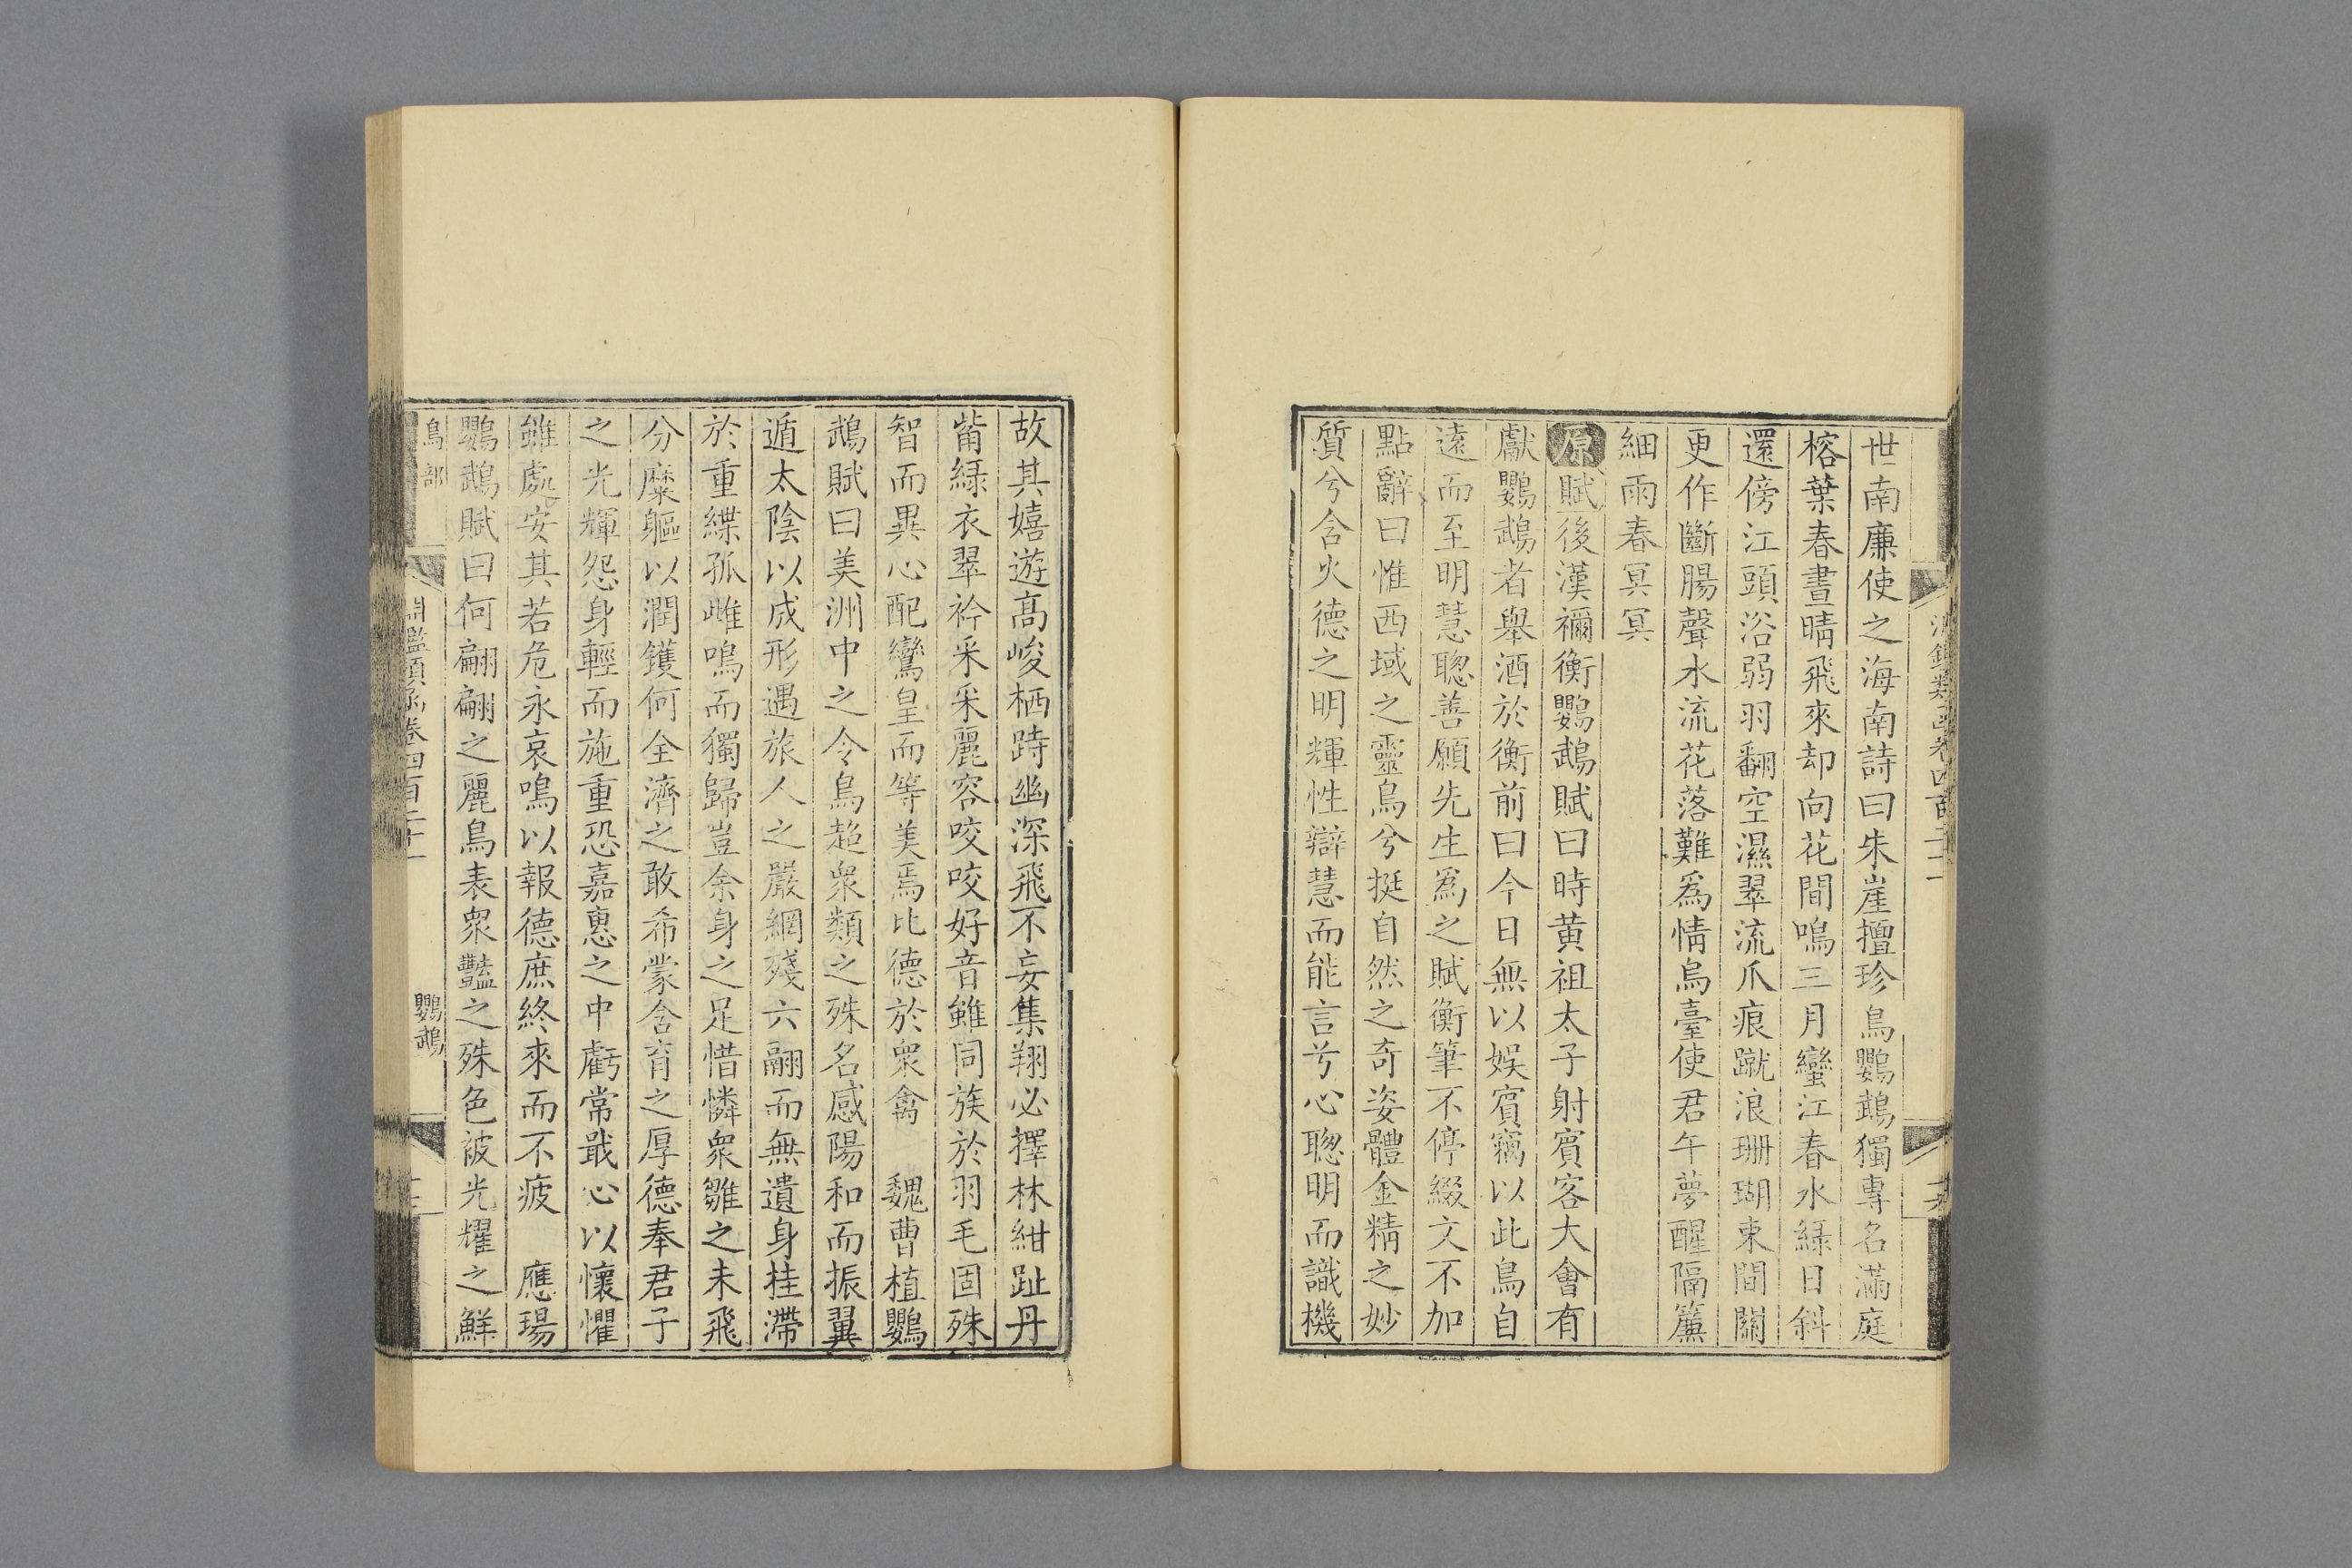 世南廉使之海南詩曰朱崖擅珍鳥鸚鵡獨專名滿庭
榕葉春晝晴飛來却向花間鳴三月蠻江春水綠日斜
還傍江頭浴弱羽翻空濕翠流爪痕蹴浪珊瑚東間關
更作斷腸聲水流花落難爲情烏臺使君午夢醒隔簾
細雨春冥冥
原賦後漢禰衡鸚鵡賦曰時黃祖太子射賓客大會有
獻鸚鵡者舉酒於衡前曰今日無以娛賓竊以此鳥自
遠而至明慧聰善願先生爲之賦衡筆不停綴文不加
點辭曰惟西域之靈鳥兮挺自然之奇姿體金精之妙
質兮含火德之明輝性辯慧而能言兮心聰明而識機
故其嬉遊高峻栖跱幽深飛不妄集翔必擇林紺趾丹
觜綠衣翠衿采采麗容咬咬好音雖同族於羽毛固殊
智而異心配鸞皇而等美焉比德於衆禽　魏曹植鸚
鵡賦曰美洲中之令鳥超衆類之殊名感陽和而振翼
遁太陰以成形遇旅人之嚴網殘六翮而無遺身挂滯
於重緤孤雌鳴而獨歸豈余身之足惜憐衆雛之未飛
分糜軀以潤鑊何全濟之敢希蒙含育之厚德奉君子
之光輝怨身輕而施重恐嘉惠之中虧常戢心以懷懼
雖處安其若危永哀鳴以報德庶終來而不疲　應瑒
鸚鵡賦曰何翩翩之麗鳥表衆豔之殊色被光耀之鮮
鳥部
淵鑑類函卷四百二十一
鸚鵡